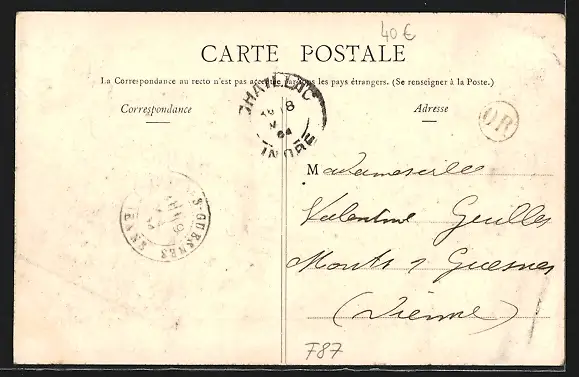 40 €
CARTE POSTALE
La Correspondance au recto n'est pas acceptée par tous les pays étrangers. (Se renseigner à la Poste.)
Correspondance
Adresse
CHAILLAC
18
04
INDRE
OR
Mademoiselle
Valentine Guilles
Monts s Guesnes
(Vienne)
TS-GUESNES
VIENNE
F87